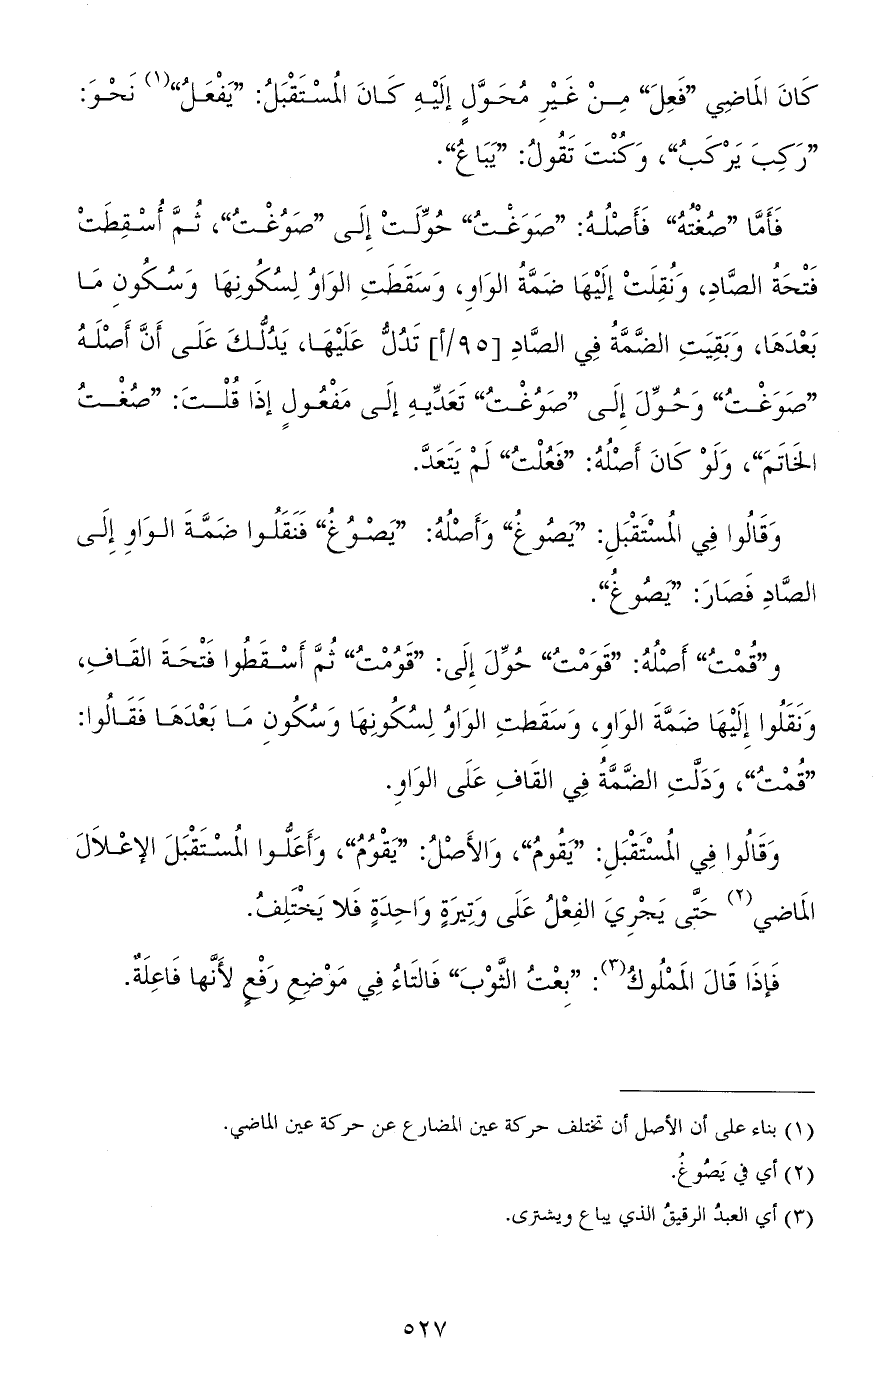 كَانَ المَاضِي ”فَعِلَ“ مِنْ غَيْرِ مُحَوَّلٍ إِلَيْهِ كَانَ المُسْتَقْبَلُ: ”يَفْعَلُ“(١) نَحْوَ:
”رَكِبَ يَرْكَبُ“، وَكُنْتَ تَقُولُ: ”يَبَاعُ“.
فَأَمَّا ”صُغْتُهُ“ فَأَصْلُهُ: ”صَوَغْتُ“ حُوِّلَتْ إِلَى ”صَوُغْتُ“، ثُمَّ أُسْقِطَتْ
فَتْحَةُ الصَّادِ، وَنُقِلَتْ إِلَيْهَا ضَمَّةُ الوَاوِ، وَسَقَطَتِ الوَاوُ لِسُكُونِهَا وَسُكُونِ مَا
بَعْدَهَا، وَبَقِيَتِ الضَّمَّةُ فِي الصَّادِ [٩٥/أ] تَدُلُّ عَلَيْهَا، يَدُلُّكَ عَلَى أَنَّ أَصْلَهُ
”صَوَغْتُ“ وَحُوِّلَ إِلَى ”صَوُغْتُ“ تَعَدِّيهِ إِلَى مَفْعُولٍ إِذَا قُلْتَ: ”صُغْتُ
الخَاتَمَ“، وَلَوْ كَانَ أَصْلُهُ: ”فَعُلْتُ“ لَمْ يَتَعَدَّ.
وَقَالُوا فِي المُسْتَقْبَلِ: ”يَصُوغُ“ وَأَصْلُهُ: ”يَصْوُغُ“ فَنَقَلُوا ضَمَّةَ الوَاوِ إِلَى
الصَّادِ فَصَارَ: ”يَصُوغُ“.
و”قُمْتُ“ أَصْلُهُ: ”قَوَمْتُ“ حُوِّلَ إِلَى: ”قَوُمْتُ“ ثُمَّ أَسْقَطُوا فَتْحَةَ القَافِ،
وَنَقَلُوا إِلَيْهَا ضَمَّةَ الوَاوِ، وَسَقَطَتِ الوَاوُ لِسُكُونِهَا وَسُكُونِ مَا بَعْدَهَا فَقَالُوا:
”قُمْتُ“، وَدَلَّتِ الضَّمَّةُ فِي القَافِ عَلَى الوَاوِ.
وَقَالُوا فِي المُسْتَقْبَلِ: ”يَقُومُ“، وَالأَصْلُ: ”يَقْوُمُ“، وَأَعَلُّوا المُسْتَقْبَلَ الإعْلَالَ
المَاضِي(٢) حَتَّى يَجْرِيَ الفِعْلُ عَلَى وَتِيرَةٍ وَاحِدَةٍ فَلا يَخْتَلِفُ.
فَإِذَا قَالَ المَمْلُوكُ(٣): ”بِعْتُ الثَّوْبَ“ فَالتَاءُ فِي مَوْضِعِ رَفْعٍ لأَنَّها فَاعِلَةٌ.
(١) بناء على أن الأصل أن تختلف حركة عين المضارع عن حركة عين الماضي.
(٢) أي في يَصُوغُ.
(٣) أي العبدُ الرقيقُ الذي يباع ويشترى.
٥٢٧